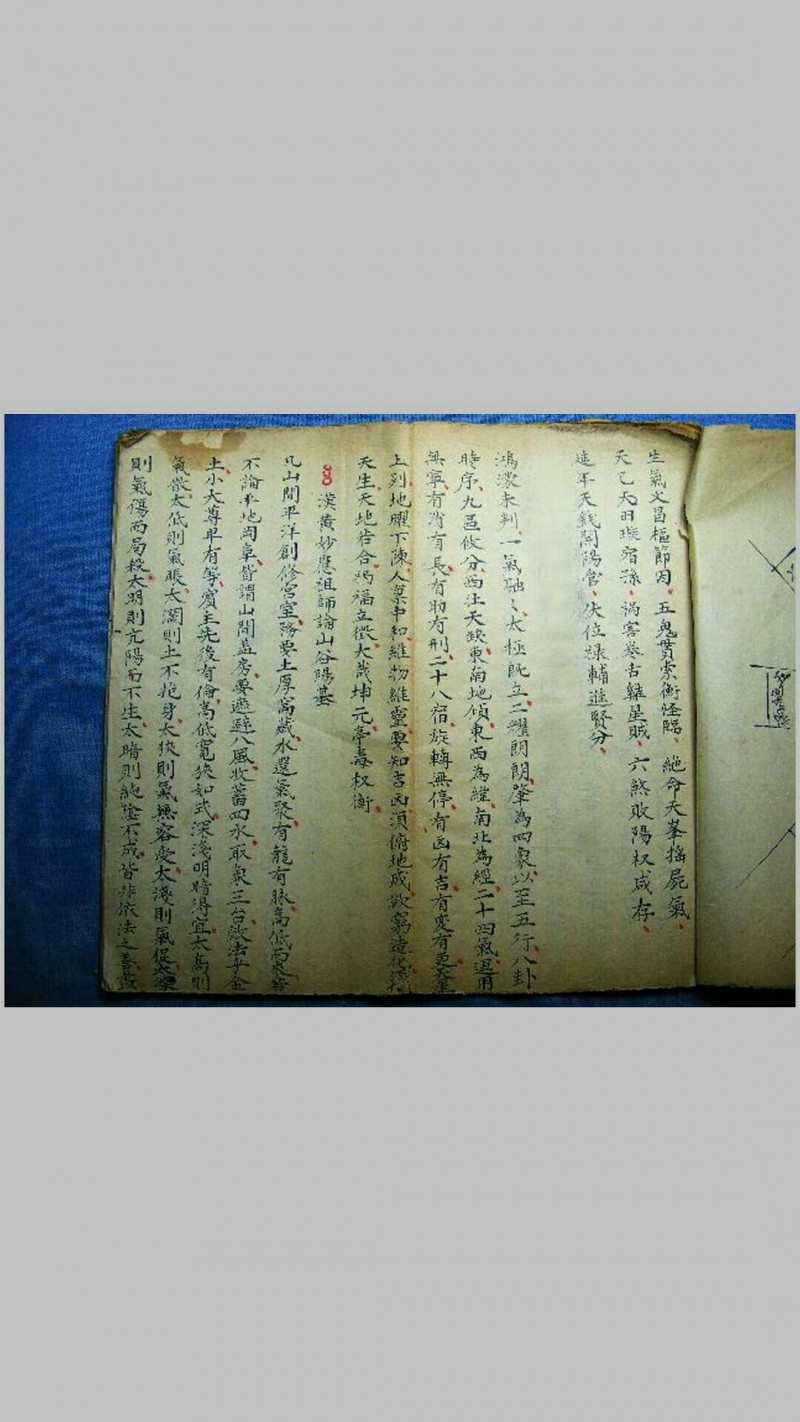 生氣文昌樞節因、五鬼貫索衡怪臨、絕命天峯搖屍氣、
天乙天璇宿孫、禍害卷舌雜星賊、六煞敗陽权咸存、
延年天錢開陽官、伏位祿輔進賢分、
鴻濛未判、一氣馳〻、太極既立、二耀朗朗、肇為四象、以至五行、八卦
時序、九區攸分、西北天缺、東南地傾、東西為緯、南北為經、二十四氣、運用
無寧、有消有長、有助有刑、二十八宿、旋轉無停、有凶有吉、有变有更、
上列、地曜下陳、人禀中和、維物維靈、要知吉凶、須俯地成、欲窮造化
天生、天地若合、禍福立徵、大哉坤元、亭毒权衡、
漢黃妙應祖師論山谷陽基
凡山間平洋創修宮室、務要土厚窩藏、水還氣聚、有龍有脉、高低
不論平地岡阜、皆謂山間蓋房、要遮避八風、收蓄四水、取象三台、
土、小大尊卑有等、賓主先後有倫、高低寬狹如式、深淺明暗得宜、太高則
氣散、太低則氣眼、太濶則土不抱身、太狹則氣無容受、太淺則氣促、太深
則氣傷而局殺、太明則亢陽而不生、太暗則純陰不成、皆非依法之善